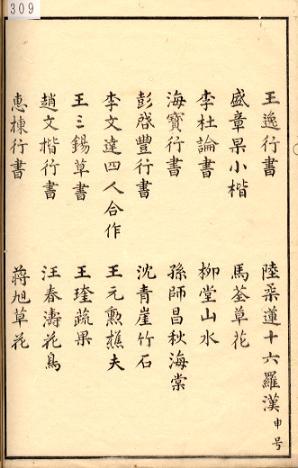 309
王逸行書 陸棻蓮十六羅漢 申号
盛章杲小楷 馬荃草花
李杜論書 柳堂山水
海寶行書 孫師昌秋海棠
彭啓豐行書 沈青崖竹石
李文達四人合作 王元勲樵夫
王三錫草書 王瑋蔬果
趙文楷行書 汪春濤花鳥
惠棟行書 蔣旭草花